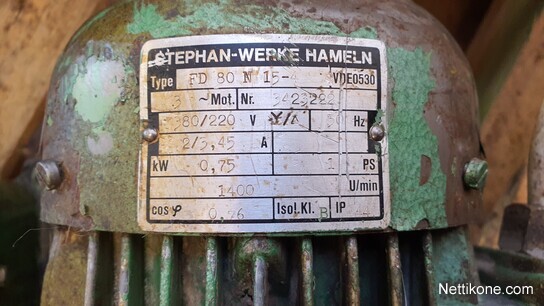 STEPHAN-WERKE HAMELN
Type FD 80 N 15- VDE0530
3 ~Mot. Nr.
380/220 V Y/Δ 50 Hz
2/3,45 A
kW 0,75 1 PS
1400 U/min
cos φ 0,76 Isol.Kl. B IP
Nettikone.com